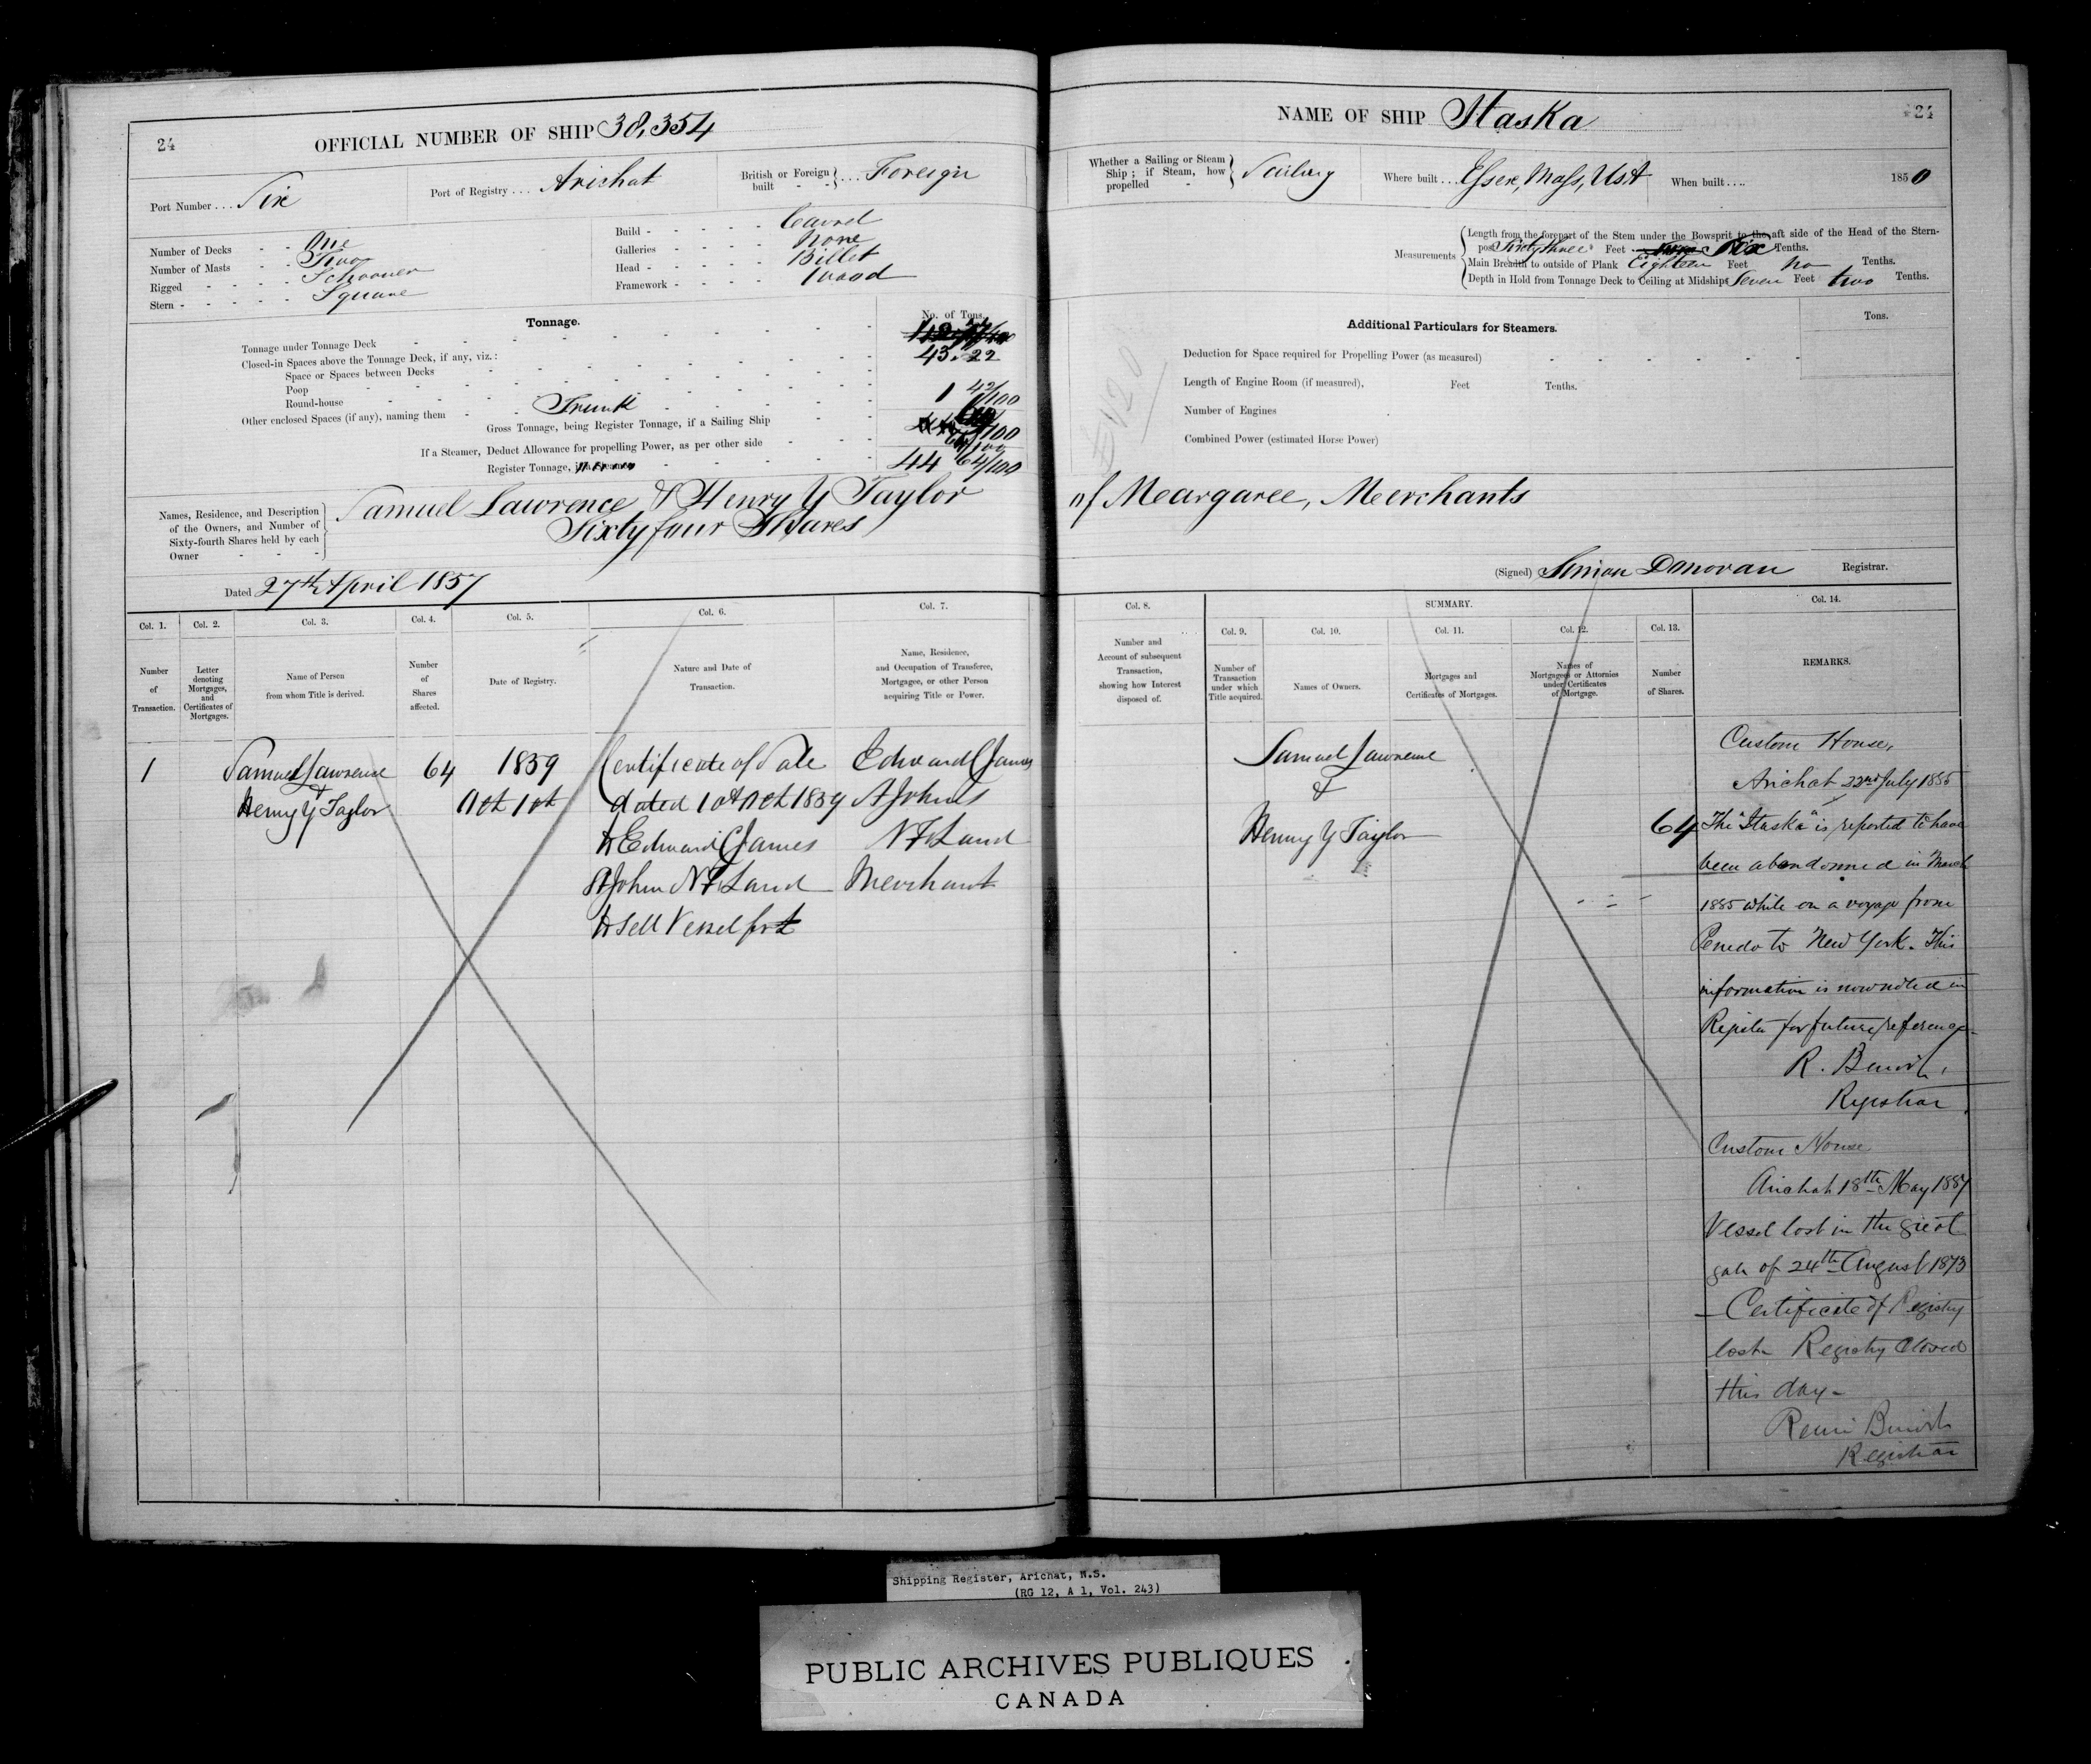 24
OFFICIAL NUMBER OF SHIP 38,354
Port Number . . . Six
Port of Registry . . . Arichat
British or Foreign built - - } . . . Foreign
Number of Decks - - One
Number of Masts - - Two
Rigged - - - - - Schooner
Stern - - - - - - Square
Build - - - - - Carvel
Galleries - - - - - None
Head - - - - - Billet
Framework - - - - Wood
Tonnage.
No. of Tons.
Tonnage under Tonnage Deck
43.22
Closed-in Spaces above the Tonnage Deck, if any, viz.:
Space or Spaces between Decks
Poop
Round-house
1 42/100
Other enclosed Spaces (if any), naming them - - Trunk
Gross Tonnage, being Register Tonnage, if a Sailing Ship
If a Steamer, Deduct Allowance for propelling Power, as per other side
Register Tonnage, if a Steamer
44 64/100
Names, Residence, and Description of the Owners, and Number of Sixty-fourth Shares held by each Owner
Samuel Lawrence & Henry Y Taylor
Sixty four Shares
Dated 27th April 1857
Col. 1. Col. 2. Col. 3. Col. 4. Col. 5. Col. 6. Col. 7.
Number of Transaction.
Letter denoting Mortgages, and Certificates of Mortgages.
Name of Person from whom Title is derived.
Number of Shares affected.
Date of Registry.
Nature and Date of Transaction.
Name, Residence, and Occupation of Transferee, Mortgagee, or other Person acquiring Title or Power.
1 Samuel Lawrence 64 1859 Certificate of Sale Edward C James
& Henry Y Taylor Oct 1st dated 1st Oct 1859 St Johns
to Edward C James N F Land
St John N F Land Merchant
to sell Vessel for £
24
NAME OF SHIP Itaska
Whether a Sailing or Steam Ship; if Steam, how propelled - } Sailing
Where built . . . Essex, Mass, USA
When built . . . . 1850
Measurements
Length from the forepart of the Stem under the Bowsprit to the aft side of the Head of the Stern-
post Sixty three Feet Six Tenths.
Main Breadth to outside of Plank Eighteen Feet no Tenths.
Depth in Hold from Tonnage Deck to Ceiling at Midships Seven Feet two Tenths.
Additional Particulars for Steamers.
Tons.
Deduction for Space required for Propelling Power (as measured)
Length of Engine Room (if measured), Feet Tenths.
Number of Engines
Combined Power (estimated Horse Power)
of Meargaree, Merchants
(Signed) Simon Donovan Registrar.
Col. 8.
SUMMARY.
Col. 9. Col. 10. Col. 11. Col. 12. Col. 13. Col. 14.
Number and Account of subsequent Transaction, showing how Interest disposed of.
Number of Transaction under which Title acquired.
Names of Owners.
Mortgages and Certificates of Mortgages.
Names of Mortgagees or Attornies under Certificates of Mortgage.
Number of Shares.
REMARKS.
Samuel Lawrence
&
Henry Y Taylor
64
Custom House,
Arichat 22nd July 1885
The "Itaska" is reported to have
been abandonned in March
1885 while on a voyage from
Penedo to New York. This
information is now noted in
Register for future reference
R. Benoit,
Registrar
Custom House
Arichat 18th May 1887
Vessel lost in the great
gale of 24th August 1873
— Certificate of Registry
lost. Registry Closed
this day —
Remi Benoit
Registrar
Shipping Register, Arichat, N.S.
(RG 12, A 1, Vol. 243)
PUBLIC ARCHIVES PUBLIQUES
CANADA